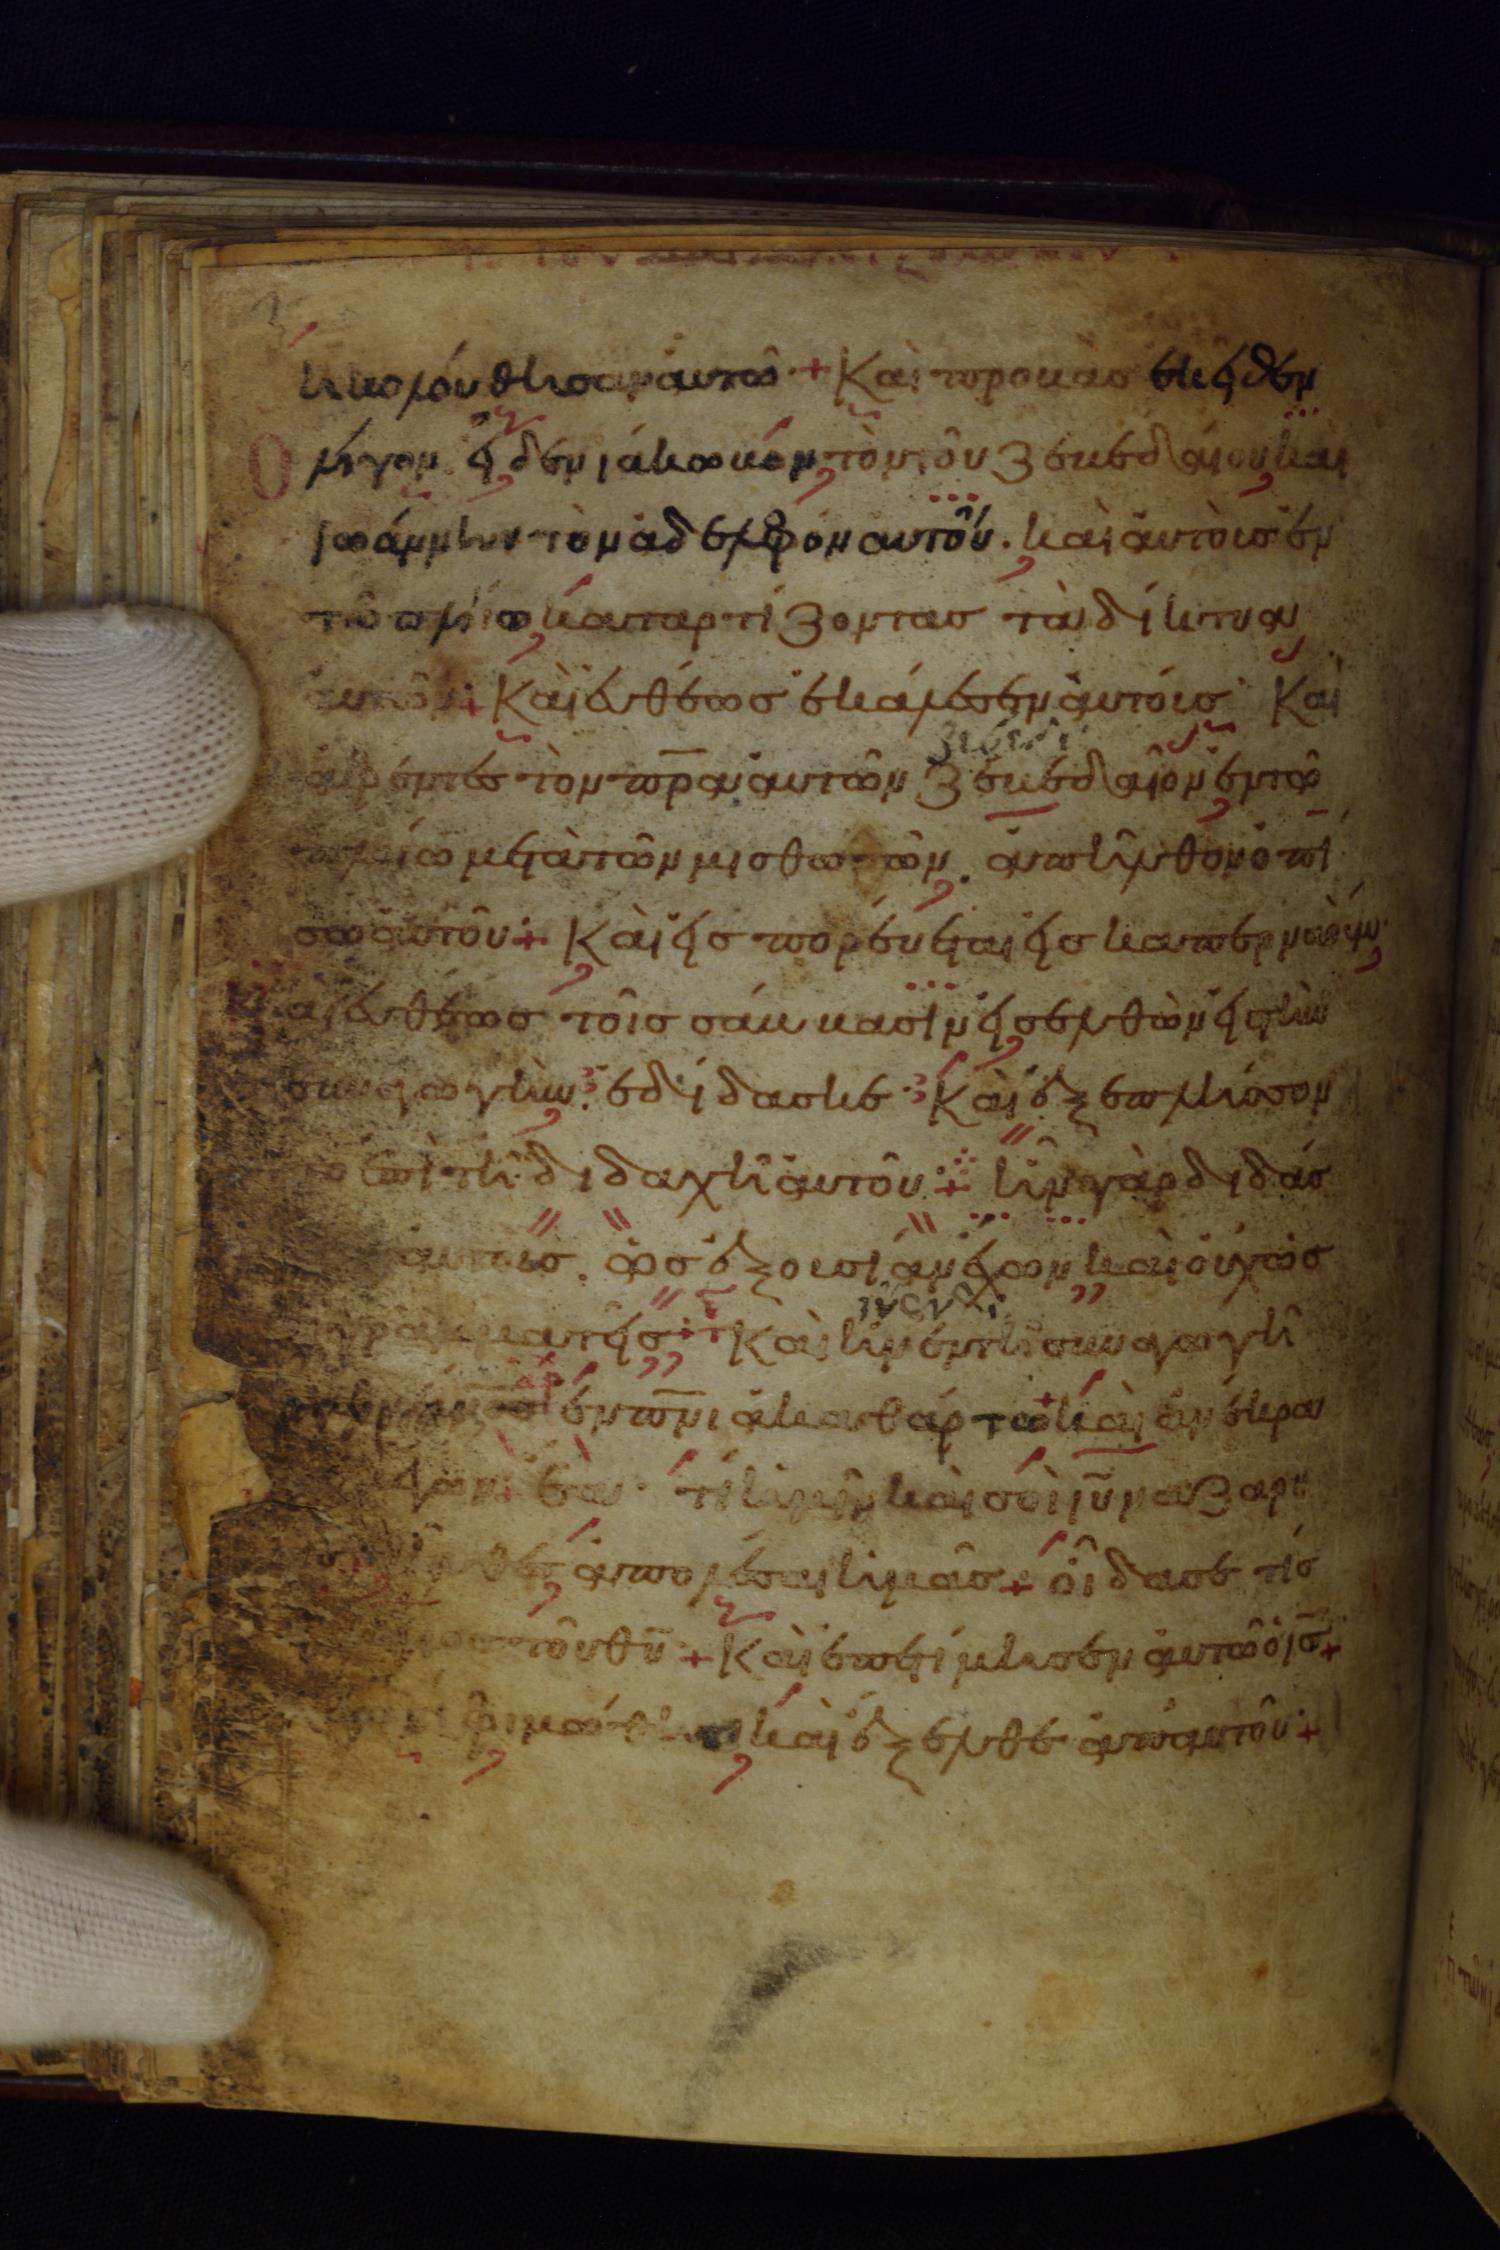 ἠκολούθησαν αὐτῶ + Καὶ προβὰσ ἐκεῖθεν
λίγον εἶδεν ἰάκωβον τὸν τοῦ ζεβεδαίου καὶ
ἰωάννην τὸν ἀδελφὸν αὐτοῦ. καὶ αὐτοὺσ ἐν
τῶ πλοίω καταρτίζοντασ τὰ δίκτυα
αὐτῶν + Καὶ εὐθέωσ ἐκάλεσεν αὐτούσ Καὶ
ἀφέντεσ τὸν πρ̅α αὐτῶν ζεβεδαῖον ἐν τῶ
πλοίω μετὰ τῶν μισθωτῶν. ἀπῆλθον ὀπί
σω αὐτοῦ + Καὶ εἰσπορεύεται εἰσ καπερναούμ
αὶ εὐθέωσ τοῖσ σάββασιν εἰσελθὼν εἰσ τὴν
συναγωγὴν. ἐδίδασκε. Καὶ ἐξεπλήσσον
το ἐπὶ τῆ διδαχῆ αὐτοῦ + ἦν γὰρ διδάσ
αὐτοὺσ. ὡσ ἐξουσίαν ἔχων καὶ οὐχ ὡσ
γραμματεῖσ + Καὶ ἦν ἐν τῆ συναγωγῆ
ἐν πν̅ι ἀκαθάρτω καὶ ἀνέκρα
γων ἔα. τί ἡμῖν καὶ σοὶ ἰυ̅ ναζαρη
ἦλθεσ ἀπολέσαι ἡμᾶσ + οἶδα σε τίσ
τοῦ θυ̅ + Καὶ ἐπετίμησεν αὐτῶ ὁ ισ̅ +
φιμώθητι καὶ ἔξελθε ἀπ' αὐτοῦ +